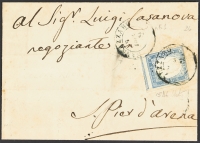 al Sig.r Luigi Casanova
negoziante
S. Pier d'arena